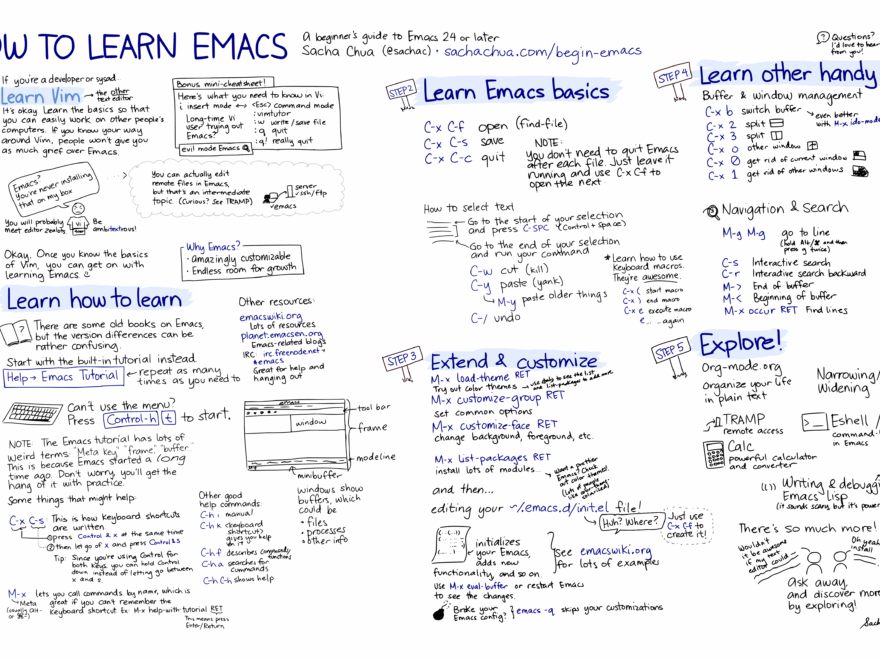 OW TO LEARN EMACS
A beginner's guide to Emacs 24 or later
Sacha Chua (@sachac) · sachachua.com/begin-emacs
Questions?
I'd love to hear
from you!
If you're a developer or sysad...
Learn Vim ← the other
text editor
It's okay. Learn the basics so that
you can easily work on other people's
computers. If you know your way
around Vim, people won't give you
as much grief over Emacs.
Bonus mini-cheatsheet!
Here's what you need to know in Vi
i insert mode ↔ <Esc> command mode
Long-time Vi
user trying out
Emacs?
evil mode Emacs
:vimtutor
:w write/save file
:q quit
:q! really quit
Emacs?
You're never installing
that on my box
You can actually edit
remote files in Emacs,
but that's an intermediate
topic (Curious? See TRAMP)
server
ssh/ftp
emacs
You will probably
meet editor zealots
Vi
Be
ambitextrous!
Okay. Once you know the basics
of Vim, you can get on with
learning Emacs.
Why Emacs?
· Amazingly customizable
· Endless room for growth
Learn how to learn
There are some old books on Emacs,
but the version differences can be
rather confusing.
Start with the built-in tutorial instead
Help → Emacs Tutorial
← repeat as many
times as you need to
Other resources:
emacswiki.org
Lots of resources
planet.emacsen.org
Emacs-related blogs
IRC: irc.freenode.net
#emacs
Great for help and
hanging out
Can't use the menu?
Press Control-h t to start.
NOTE: The Emacs tutorial has lots of
weird terms: "Meta key" "frame," "buffer"
This is because Emacs started a long
time ago. Don't worry, you'll get the
hang of it with practice.
emacs
window
tool bar
frame
modeline
minibuffer
windows show
buffers, which
could be
· files
· processes
· other info
Some things that might help:
C-x C-s This is how keyboard shortcuts
are written
① press Control & x at the same time
② then let go of x and press Control & s
Tip: Since you're using Control for
both keys, you can hold Control
down instead of letting go between
x and s
M-x lets you call commands by name, which is
great if you can't remember the
keyboard shortcut Ex: M-x help-with-tutorial RET
Meta
(usually Alt-
or ⌘-)
This means press
Enter/Return
Other good
help commands:
C-h i manual
C-h k keyboard
shortcut:
gives you help
on it
C-h f describes commands/
functions
C-h a searches for
commands
C-h C-h shows help
STEP 2
Learn Emacs basics
C-x C-f open (find-file)
C-x C-s save
C-x C-c quit
NOTE:
You don't need to quit Emacs
after each file. Just leave it
running and use C-x C-f to
open the next.
How to select text
Go to the start of your selection
and press C-SPC (Control+Space)
Go to the end of your selection
and run your command
C-w cut (kill)
C-y paste (yank)
M-y paste older things
C-/ undo
* Learn how to use
Keyboard macros.
They're awesome.
C-x ( start macro
C-x ) end macro
C-x e execute macro
e... ...again
STEP 3
Extend & customize
M-x load-theme RET
Try out color themes
M-x customize-group RET
set common options
M-x customize-face RET
change background, foreground, etc.
M-x list-packages RET
install lots of modules...
Want a prettier
Emacs? Check
out color themes!
and then...
editing your ~/.emacs.d/init.el file!
Huh? Where?
Just use
C-x C-f to
create it!
initializes
your Emacs,
adds new
functionality, and so on.
See emacswiki.org
for lots of examples
Use M-x eval-buffer or restart Emacs
to see the changes.
Broke your
Emacs config?
emacs -q skips your customizations
STEP 4
Learn other handy
Buffer & window management
C-x b switch buffer
even better
with M-x ido-mode
C-x 2 split
C-x 3 split
C-x o other window
C-x 0 get rid of current window
C-x 1 get rid of other windows
Navigation & Search
M-g M-g go to line
(hold Alt/⌘ and then
press g twice)
C-s Interactive search
C-r Interactive search backward
M-> End of buffer
M-< Beginning of buffer
M-x occur RET Find lines
STEP 5
Explore!
Org-mode.org
Organize your life
in plain text
Narrowing/
Widening
TRAMP
remote access
Eshell /
command-
in Emacs
Calc
powerful calculator
and converter
(()) Writing & debuggi
Emacs Lisp
(it sounds scary, but it's power
There's so much more!
Wouldn't
it be awesome
if my text
editor could...
Oh yeah
install
Ask away,
and discover more
by exploring!
Sach